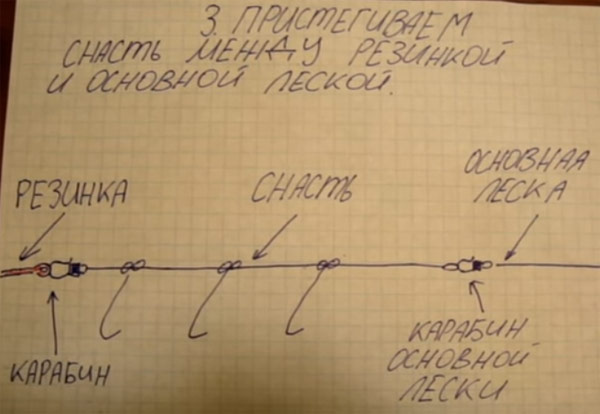 3. ПРИСТЕГИВАЕМ
СНАСТЬ МЕЖДУ РЕЗИНКОЙ
И ОСНОВНОЙ ЛЕСКОЙ.
РЕЗИНКА
СНАСТЬ
ОСНОВНАЯ
ЛЕСКА
КАРАБИН
КАРАБИН
ОСНОВНОЙ
ЛЕСКИ